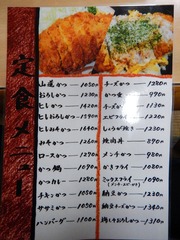 定食メニュー
山遊かつ 1050円
おろしかつ 1230円
ヒレかつ 1420円
ヒレおろしかつ 1590円
ヒレみそかつ 1640円
みそかつ 1260円
ロースかつ 1290円
かつ鍋 1090円
かつカレー 1280円
チキンかつ 1050円
ササミかつ 1050円
ハンバーグ 1100円
チーズかつ 1280円
かつ重 990円
チーズかつ
エビフライ
しょうが焼き
焼肉丼 890円
かきフライ
ミックスフライ
納豆かつ 1210円
納豆チーズかつ 1340円
梅しそおろしかつ 1310円